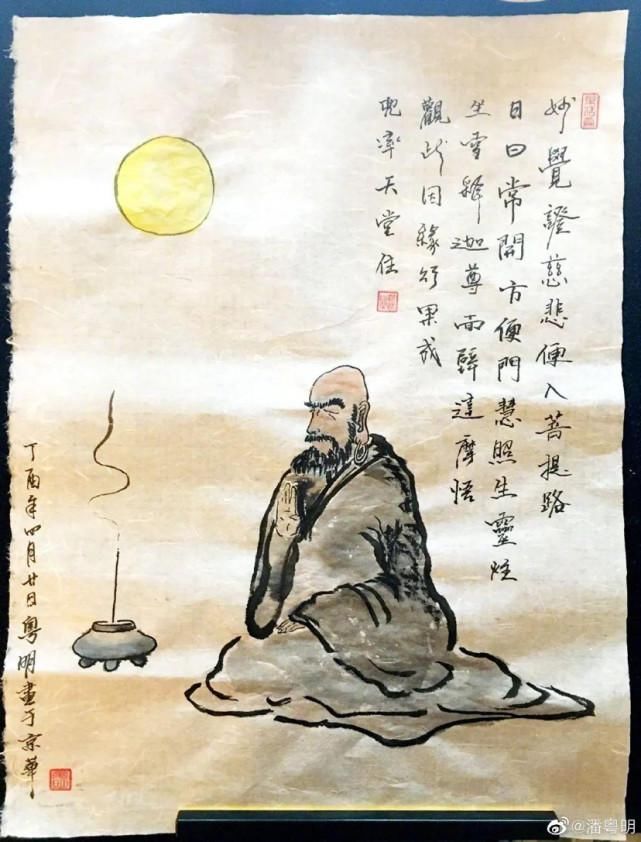 妙覺證慈悲便入菩提路
日日常開方便門慧照生靈炷
坐雪釋迦尊面壁達摩悟
觀此因緣行果成
兜率天堂住
丁酉年四月廿日粵明畫于京華
@潘粤明